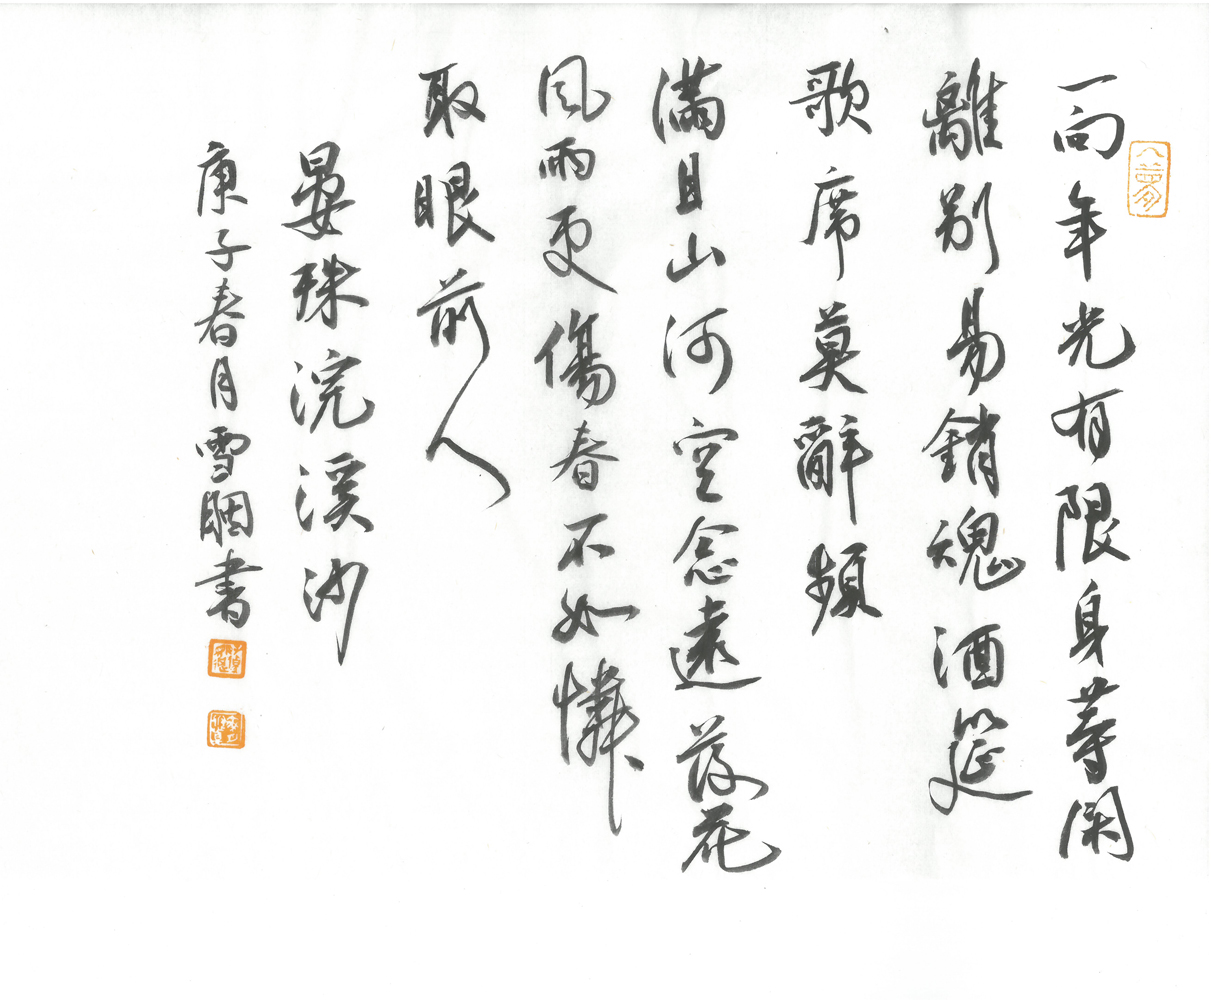 一向年光有限身等閑
離別易銷魂酒筵
歌席莫辭頻
滿目山河空念遠落花
風雨更傷春不如憐
取眼前人
晏殊浣溪沙
庚子春月雪胭書